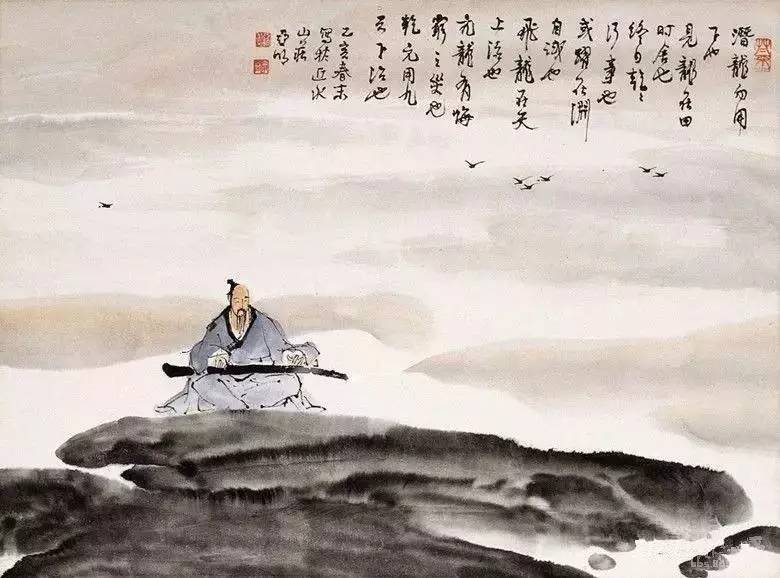 潜龍勿用
下也
見龍在田
时舍也
終日乾〻
行事也
或躍在淵
自试也
飛龍在天
上治也
亢龍有悔
窮之災也
乾元用九
天下治也
乙亥春末
寫於近水
山莊
亚明